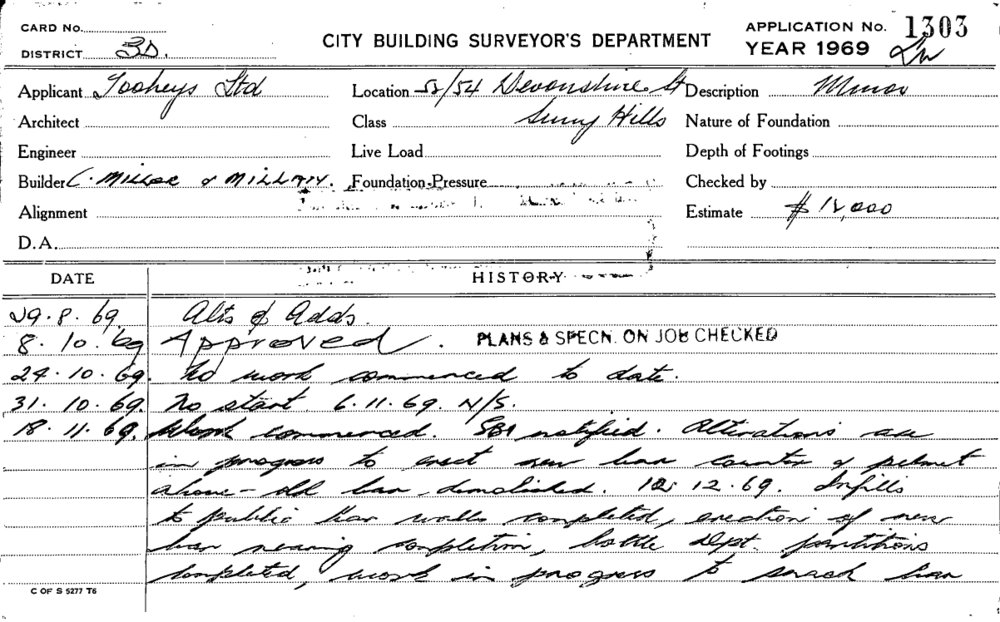 CARD No.
DISTRICT 3D.
CITY BUILDING SURVEYOR'S DEPARTMENT
APPLICATION No. 1303
YEAR 1969
Applicant Tooheys Ltd
Location 52/54 Devonshire St
Description Minor
Architect
Class Surry Hills
Nature of Foundation
Engineer
Live Load
Depth of Footings
Builder C. &
Foundation Pressure
Checked by
Alignment
Estimate $12,000
D.A.
DATE HISTORY
29.8.69 Alts & Adds.
8.10.69 Approved. PLANS & SPECN. ON JOB CHECKED
24.10.69. No work commenced to date.
31.10.69. No start. 6.11.69. N/S.
18.11.69. Work commenced. notified. Alterations are
in progress to erect new bar counter & pelmet
above - old bar demolished. 12.69. Infills
to public bar walls completed, erection of new
bar nearing completion, bottle dept. partitions
completed, work in progress to snack bar
C OF S 5277 T6